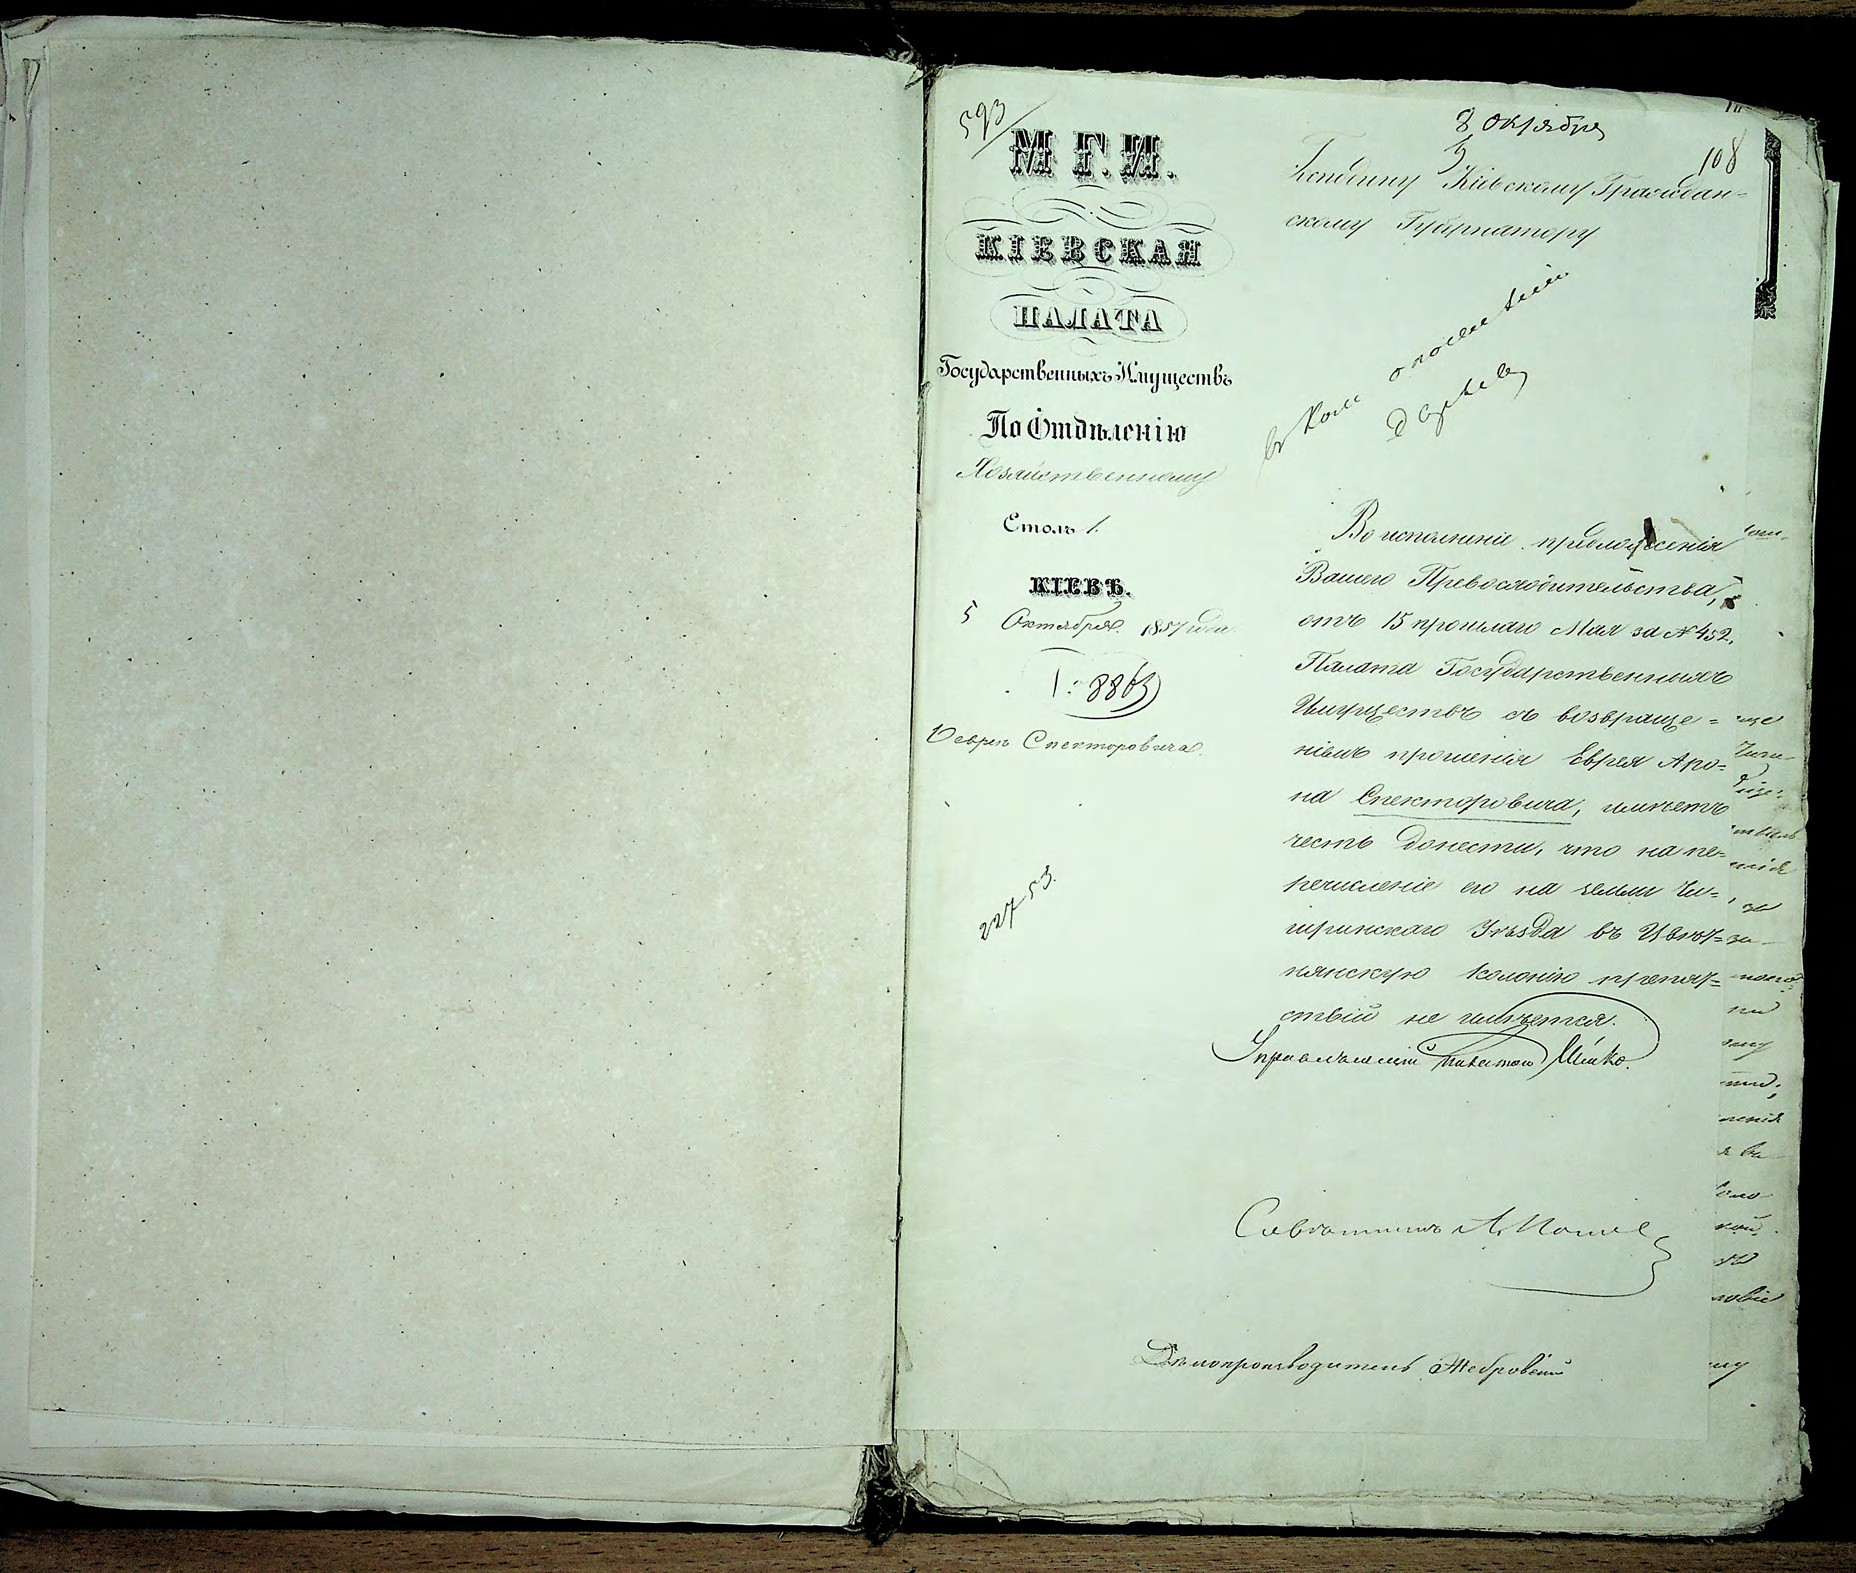 593
М. Г. И.
КІЕВСКАЯ
ПАЛАТА
Государственныхъ Имуществъ
По Отдѣленію
Хозяйственному
Столъ 1.
КІЕВЪ.
5 Октября 1857 года
О евреѣ Спекторовича.
22753.
8 октября
108
Господину Кіевскому Граждан-
скому Губернатору
Во исполненіе предложенія
Вашего Превосходительства,
отъ 15 прошлаго Мая за № 452,
Палата Государственныхъ
Имуществъ съ возвраще=
ніемъ прошенія Еврея Аро=
на Спекторовича, имѣетъ
честь донести, что на пе=
речисленіе его на земли Чи=
гиринскаго Уѣзда въ
колонію препят=
ствій не имѣется.
Управляющій Палатою
Совѣтникъ А.
Дѣлопроизводитель Жебровскій